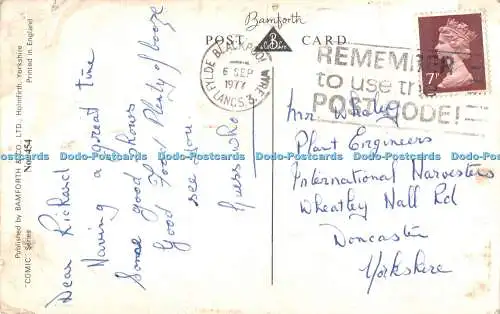 Bamforth
POST CARD
FYLDE BLACKPOOL
6 SEP
1977
LANCS. 3.
REMEMBER
to use the
POSTCODE!
7P
Dear Richard
Having a great time
Some good shows
Good Food Plenty of booze
see you.
Guess who
Mr Whaley
Plant Engineers
International Harvesters
Wheatley Hall Rd
Doncaster
Yorkshire
"COMIC" Series No. 1454
Published by BAMFORTH & CO. LTD. Holmfirth, Yorkshire
Printed in England
Dodo-Postcards Dodo-Postcards Dodo-Postcards Dodo-Postcards Dodo-Postcards Dodo-Postcards